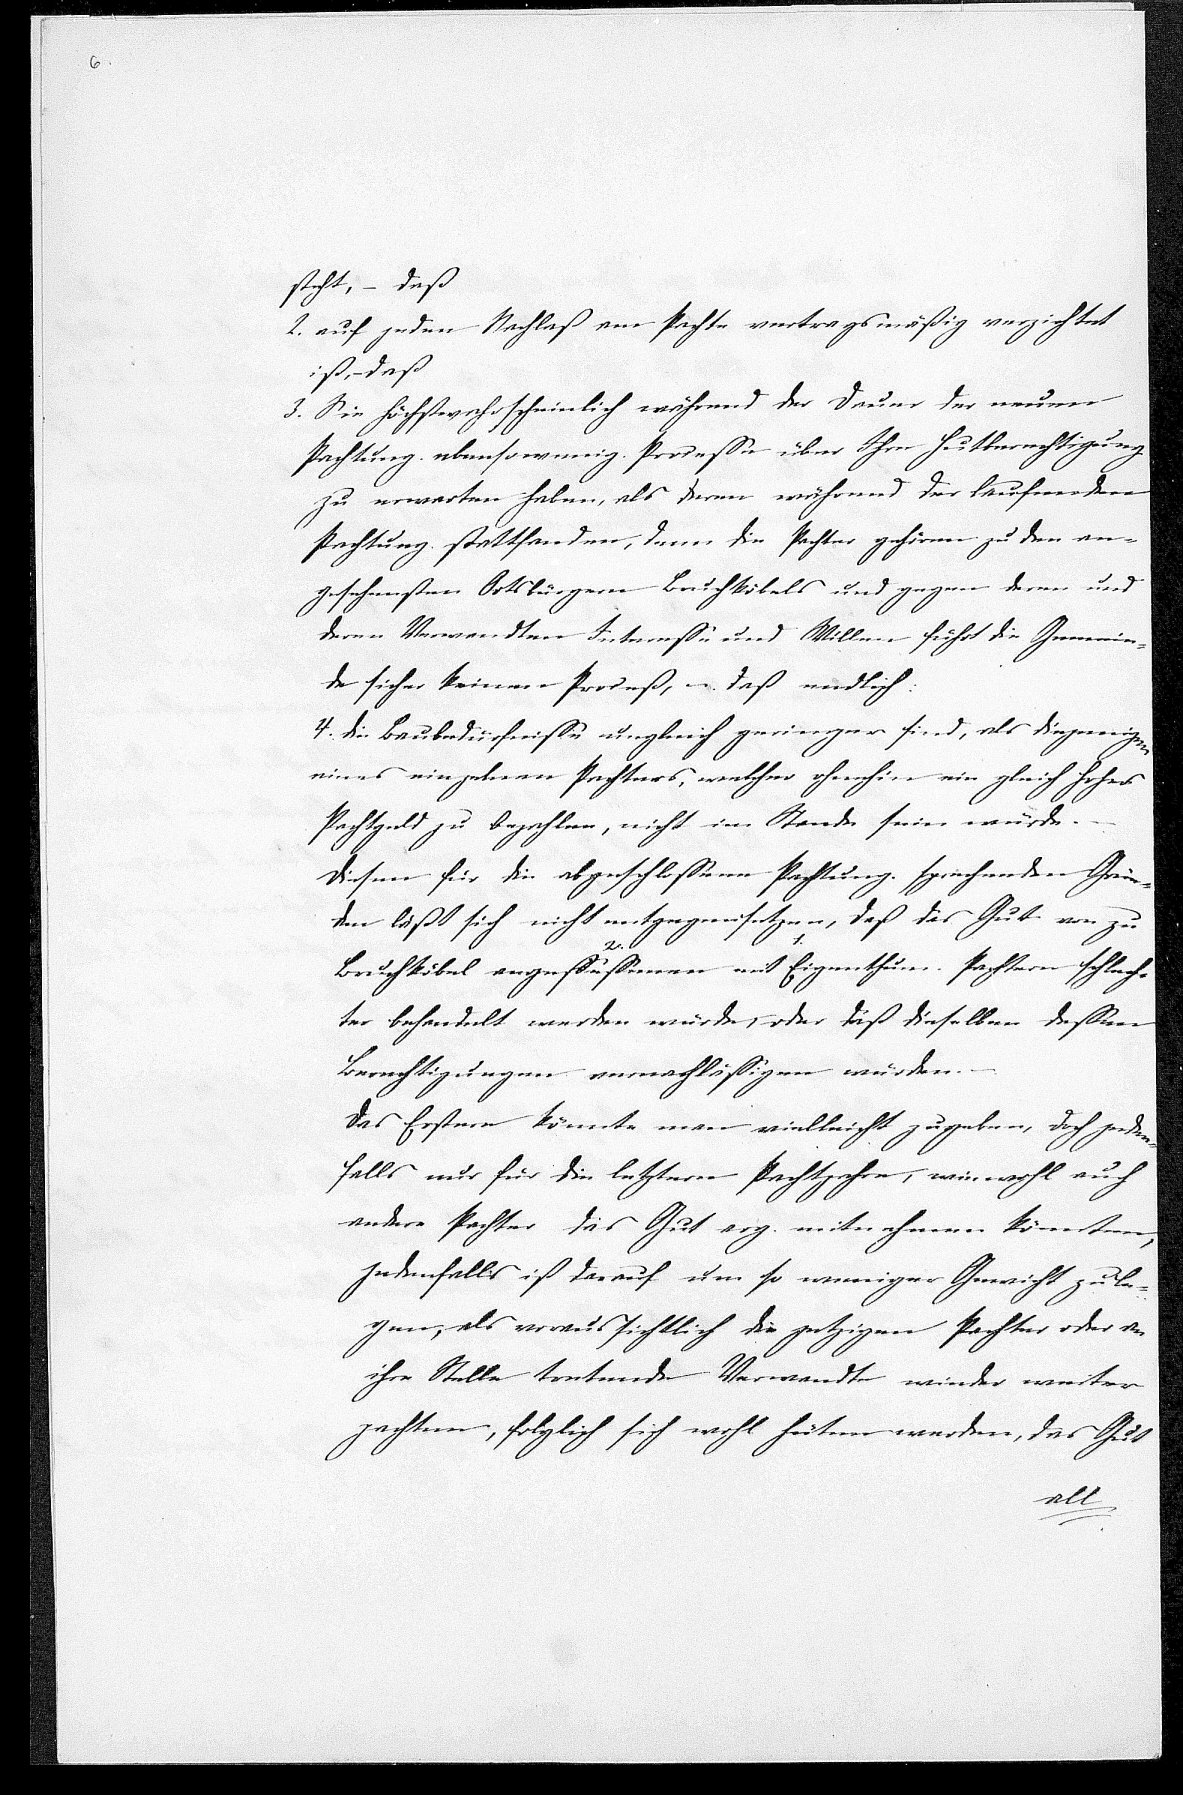 6.
steht, – daß
2. auf jeden Nachlaß am Pachte vertragsmäßig verzichtet
ist, – daß
3. Sie höchstwahrscheinlich während der Dauer der neuen
Pachtung ebensowenig Processe über Ihre Hutberechtigung
zu erwarten haben, als deren während der laufenden
Pachtung stattfanden, denn die Pächter gehören zu den an-
gesehensten Ortsbürgern Bruchköbels und gegen deren und
deren Verwandten Interesse und Willen führt die Gemein-
de sicher keinen Proceß, – daß endlich:
4. die Baubedürfnisse ungleich geringer sind, als diejenigen
eines einzelnen Pachters, welcher ohnehin ein gleich hohes
Pachtgeld zu bezahlen, nicht im Stande sein würde. –
Diesen für die abgeschlossene Pachtung sprechenden Grün-
den läßt sich nicht entgegensetzen, daß das Gut von zu
Bruchköbel angesessenen 2. mit Eigenthum 1. Pachtern schlech-
ter behandelt werden würde, oder daß dieselben dessen
Berechtigungen vernachlässigen würden. –
Das Erstere könnte man vielleicht zugeben, doch jeden-
falls nur für die letztern Pachtjahre, wiewohl auch
andere Pachter das Gut arg mitnehmen könnten,
jedenfalls ist darauf um so weniger Gewicht zu le-
gen, als voraussichtlich die jetzigen Pachter oder an
ihre Stelle tretende Verwandte wieder weiter
pachten, folglich sich wohl hüten werden, das Gut
all